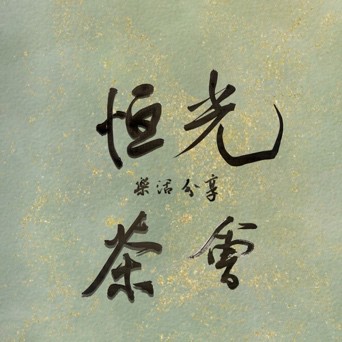 恒光
樂活分享
茶會